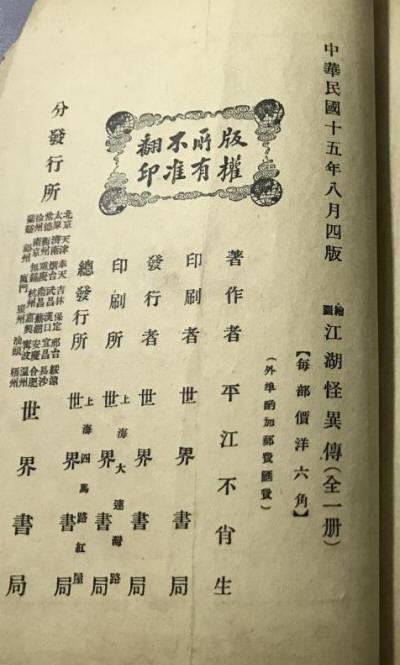 中華民國十五年八月四版
繪圖江湖怪異傳(全一册)
【每部價洋六角】
(外埠酌加郵費匯費)
版權
所有
不准
翻印
著作者 平江不肖生
印刷者 世界書局
發行者 世界書局
印刷所 上海大連灣路 世界書局
總發行所 上海四馬路紅屋 世界書局
分發行所
北京 天津 奉天 吉林 保定 邢台 綏遠
太原 濟南 烟台 武昌 漢口 宜昌 長沙
常德 衡州 重慶 南昌 蕪湖 安慶 合肥
徐州 南京 無錫 杭州 嘉興 寧波 溫州
蘭谿 廈門 廣州 汕頭 梧州
世界書局